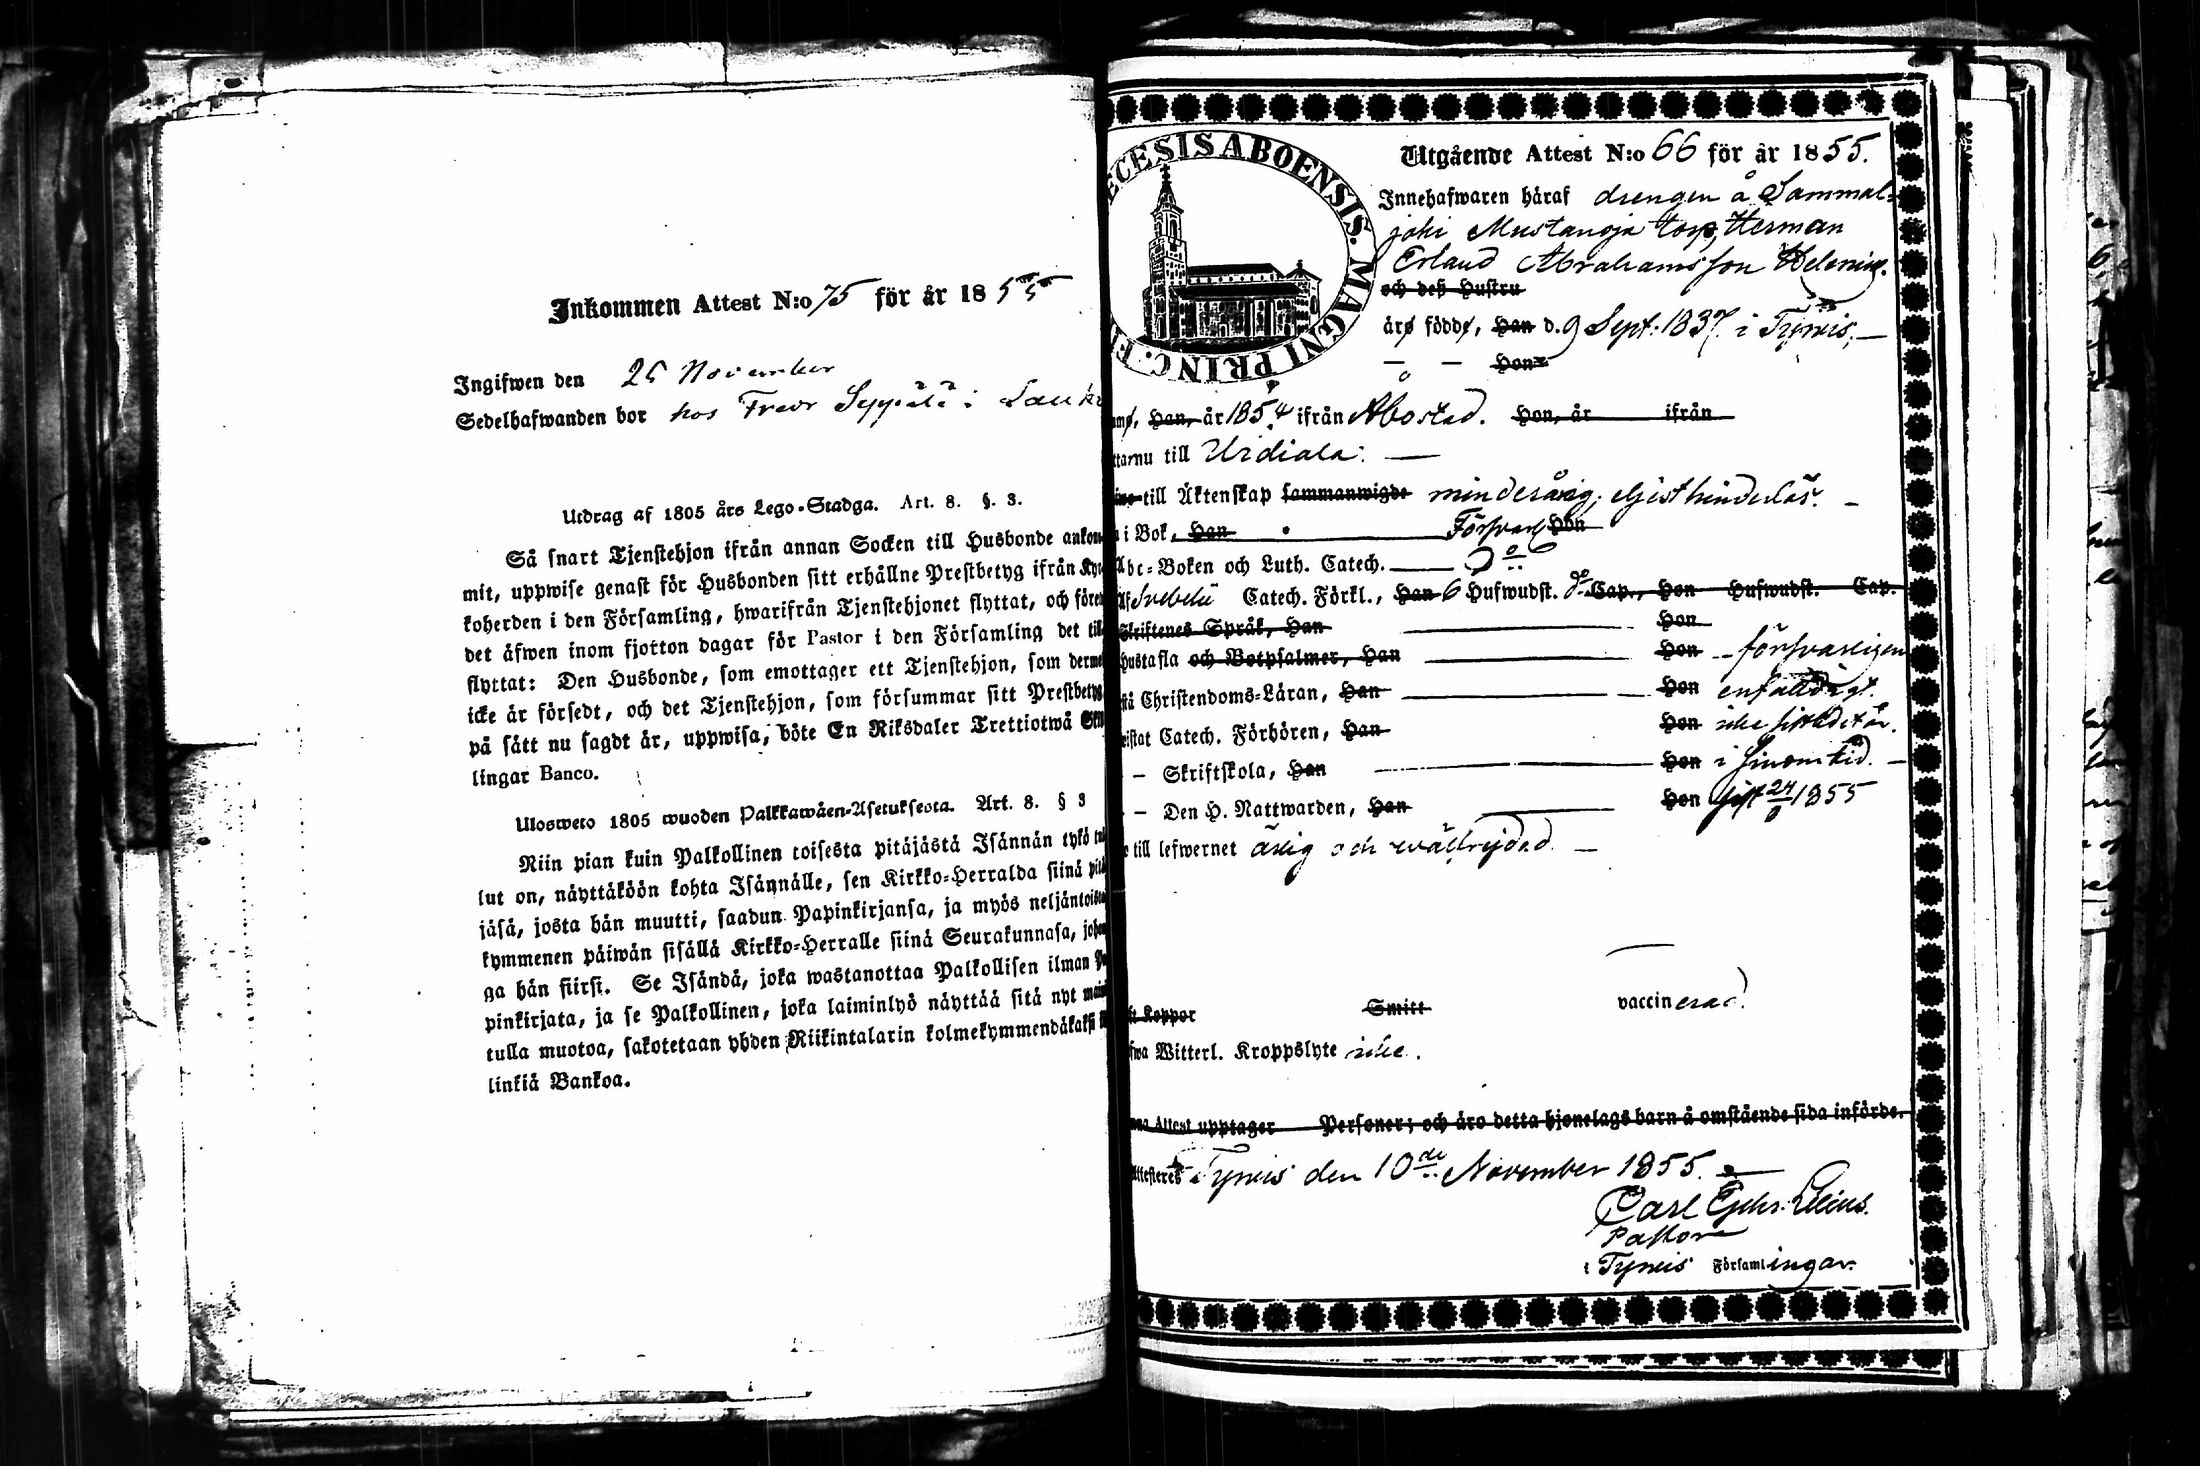 Inkommen Attest N:o 75 för år 1855
Ingifwen den 25 November
Sedelhafwanden bor hos Fredr Seppälä i
Utdrag af 1805 års Lego-Stadga. Art. 8. §. 3.
Så snart Tjenstehjon ifrån annan Socken till Husbonde ankom-
mit, uppwise genast för Husbonden sitt erhållne Prestbetyg ifrån Kyr-
koherden i den Församling, hwarifrån Tjenstehjonet flyttat, och före
det äfwen inom fjorton dagar för Pastor i den Församling det till-
flyttat: Den Husbonde, som emottager ett Tjenstehjon, som derme
icke är försedt, och det Tjenstehjon, som försummar sitt Prestbetyg
på sätt nu sagdt är, uppwisa, böte En Riksdaler Trettiotwå Skil
lingar Banco.
Ulosweto 1805 wuoden Palkkawäen-Asetuksesta. Art. 8. § 3
Niin pian kuin Palkollinen toisesta pitäjästä Isännän tykö tul
lut on, näyttäköön kohta Isännälle, sen Kirkko-Herralda siinä pitä
jäsä, josta hän muutti, saadun Papinkirjansa, ja myös neljäntoista
kymmenen päiwän sisällä Kirkko-Herralle siinä Seurakunnasa, johon
ga hän siirsi. Se Isändä, joka wastanottaa Palkollisen ilman Pa
pinkirjata, ja se Palkollinen, joka laiminlyö näyttää sitä nyt mainit
tulla muotoa, sakotetaan yhden Riikintalarin kolmekymmendäkaksi kil
linkiä Bankoa.
ECESIS ABOENSIS. MAGNI PRINC. F
Utgående Attest N:o 66 för år 1855.
Innehafwaren häraf drengen å Sammal-
joki Mustanoja torp, Herman
Erland Abrahamsson Helenius.
och deß Hustru
äro födde, Han d. 9 Sept. 1837 i Tyrvis, —
— — Hon
Han, år 1854 ifrån Åbo stad. Hon, år ifrån
ttarnu till Urdiala. —
till Äktenskap sammanwigde minderårig, eljest hinderlös. —
i Bok, Han Försvarl Hon
Abc-Boken och Luth. Catech. — Do
Af Svebelii Catech. Förkl., Han 6 Hufwudst. Cap., Hon Hufwudst. Cap.
Skriftenes Språk, Han Hon
Hustafla och Botpsalmer, Han Hon försvarligen
stå Christendoms-Läran, Han Hon enfaldigt.
istat Catech. Förhören, Han Hon icke sistledit år.
— Skriftskola, Han Hon i sinom tid. —
— Den H. Nattwarden, Han Hon sist 24/6 1855
till lefwernet ärlig och wälfrejdad. —
ft Koppor Smitt vaccinerad.
fwa Witterl. Kroppslyte icke.
nna Attest upptager Personer; och äro detta hjonelags barn å omstående sida införde.
Attesteres Tyrvis den 10de November 1855.
Carl
Pastor
i Tyrvis Församlingar.